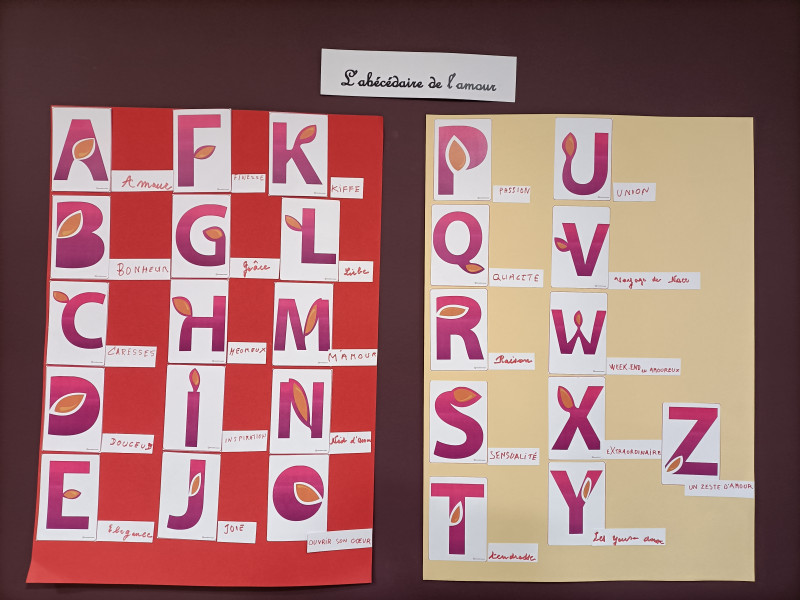 L'abécédaire de l'amour
A
Amour
B
BONHEUR
C
CARESSES
D
DOUCEUR
E
Elégance
F
FINESSE
G
Grâce
H
HEUREUX
I
INSPIRATION
J
JOIE
K
KIFFE
L
M
M'AMOUR
N
O
OUVRIR SON CŒUR
P
PASSION
Q
QUALITÉ
R
Raison
S
SENSUALITÉ
T
tendresse
U
UNION
V
voyage de Noce
W
WEEK-END en AMOUREUX
X
EXTRAORDINAIRE
Y
Les yeux doux
Z
UN ZESTE D'AMOUR